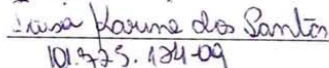 Luisa Karine dos Santos
101.773.124-09